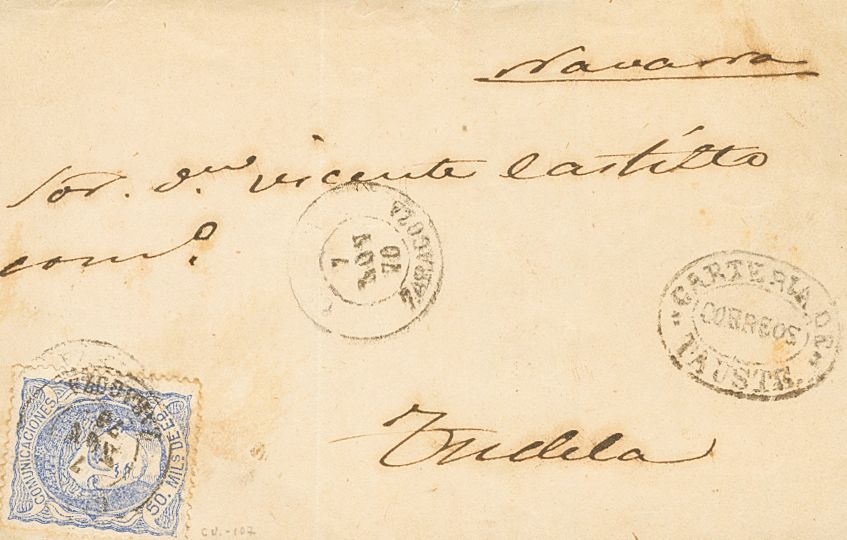 Navarra
Sor. Dn. Vicente Castillo
com.o
ZARAGOZA
7
NOV
70
CARTERIA DE
CORREOS
TAUSTE.
Tudela
COMUNICACIONES
50 MILS DE E.
NOV
cu.-107